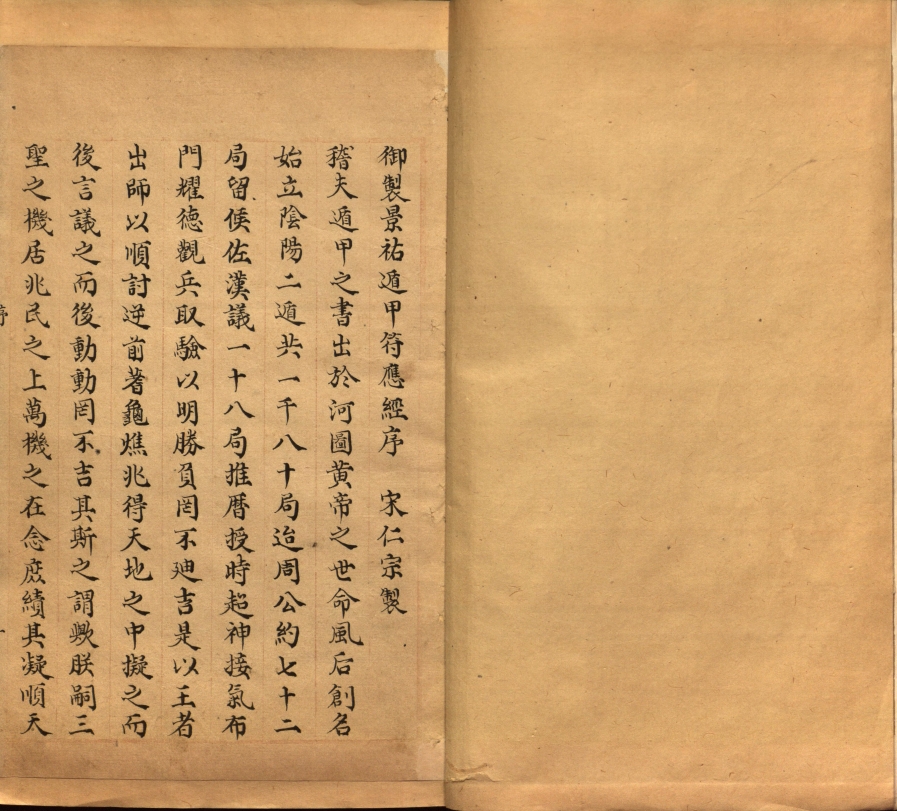 御製景祐遁甲符應經序　宋仁宗製
稽夫遁甲之書出於河圖黄帝之世命風后創名
始立陰陽二遁共一千八十局迨周公約七十二
局留侯佐漢議一十八局推暦授時超神接氣布
門耀德觀兵取驗以明勝負罔不廸吉是以王者
出師以順討逆前著龜燋兆得天地之中擬之而
後言議之而後動動罔不吉其斯之謂歟朕嗣三
聖之機居兆民之上萬機之在念庶績其凝順天
序
一